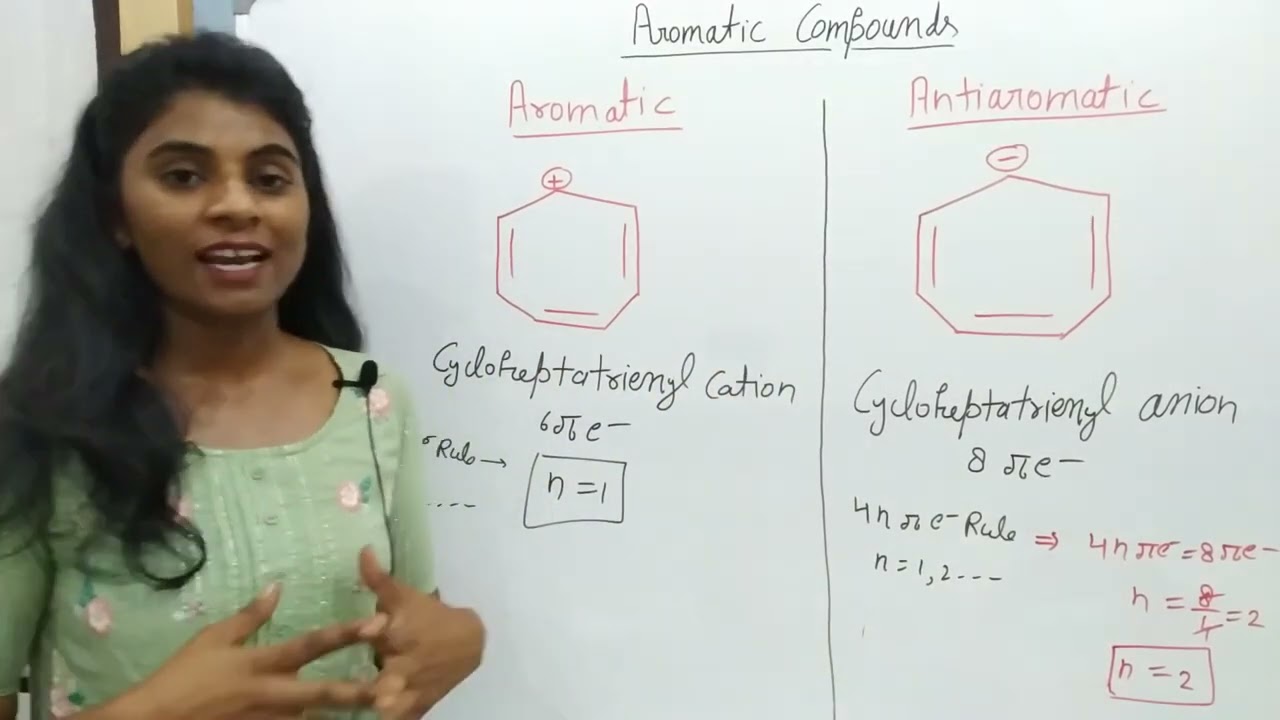 Aromatic Compounds
Aromatic
⊕
Cycloheptatrienyl Cation
6πe−
Rule →
n = 1
....
Antiaromatic
⊖
Cycloheptatrienyl anion
8 πe−
4n πe− Rule ⇒ 4nπe− = 8πe−
n = 1, 2 ---
n = 8/4 = 2
n = 2